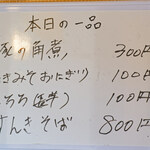 本日の一品
豚の角煮 300円
きみそおにぎり) 100円
もち(笹) 100円
すんきそば 800円